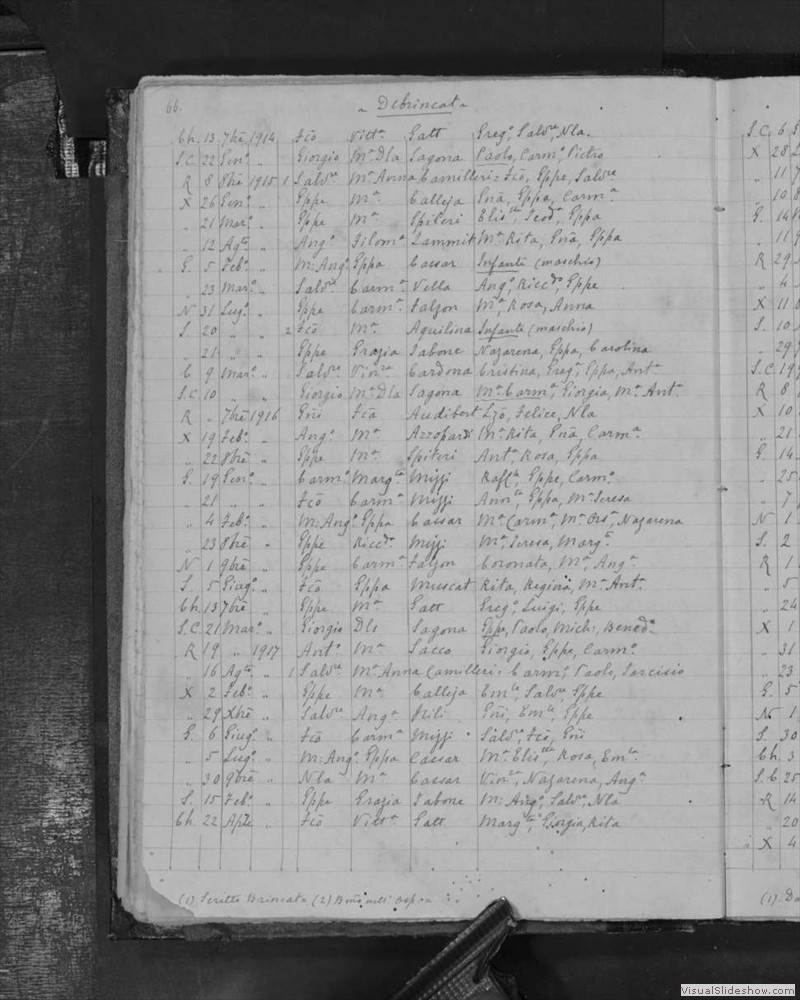 66.
~ Debrincat ~
Ch. 13 7bre 1914 Fcõ Vittª Gatt Gregº, Salvre, Nla.
S.C. 22 Genº " Giorgio Mª Dla Sagona Paolo, Carmº, Pietro
R 8 8bre 1915 1 Salvre Mª Anna Camilleri = Fcõ, Eppe, Salvre
X 26 Genº " Eppe Mª Calleja Gnã, Eppa, Carmª
" 21 Marº " Eppe Mª Spiteri Eppa
" 12 Agto " Angº Filomª Zammit Mª Rita, Gnã, Eppa
G. 5 Febº " M: Angº Eppa Caesar Infante (maschio)
" 23 Marº " Salvre Carmª Vella Angº, Riccdo, Eppe
N 31 Lugº " Eppe Carmª Falzon Mª, Rosa, Anna
S. 20 " " 2 Fcõ Mª Aquilina Infante (maschio)
" 21 " " Eppe Grazia Tabone Nazarena, Eppa, Carolina
C 9 Marº " Salvre Vinza Cardona Cristina, Gregª, Eppa, Antª
S.C. 10 " " Giorgio Mª Dla Sagona Mª Carmª, Giorgia, Mª Antª
R " 7bre 1916 Gnĩ Fcã Audibert Felice, Nla
X 19 Febº " Angº Mª Azzopardi Mª Rita, Gnã, Carmª
" 22 8bre " Eppe Mª Spiteri Antª, Rosa, Eppa
G. 19 Genº " Carmº Margta Mizzi Raflª, Eppe, Carmº
" 21 " " Fcõ Carmª Mizzi Annta, Eppa, Mª Teresa
" 4 Febº " M: Angº Eppa Caesar Mª Carmª, Nazarena
" 23 8bre " Eppe Riccda Mizzi Mª, Teresa, Margta
N 1 9bre " Eppe Carmª Falzon Coronata, Mª, Angª
S. 5 Giugº " Fcõ Eppa Muscat Rita, Regina, Mª Antª
Ch. 13 7bre " Eppe Mª Gatt Gregº, Luigi, Eppe
S.C. 21 Marº " Giorgio Dls Sagona Eppe, Paolo, Mich:, Benedº
R 19 " 1917 Antº Mª Sacco Giorgio, Eppe, Carmº
" 16 Agto " 1 Salvre Mª Anna Camilleri = Carmº, Paolo, Tarcisio
X 2 Febº " Eppe Mª Calleja Emle, Salvre, Eppe
" 29 Xbre " Salvre Angª Hili Gnĩ, Emle, Eppe
G. 6 Giugº " Fcõ Carmª Mizzi Salvre, Fcõ, Gnĩ
" 5 Lugº " M: Angº Eppa Caesar Rosa, Emla
" 30 9bre " Nla Mª Caesar Vinza, Nazarena, Angª
S. 15 Febº " Eppe Grazia Tabone M: Angº, Salvre, Nla
Ch. 22 Aple " Fcõ Vittª Gatt Margta, Giorgia, Rita
(1) Scritto Brincat (2)
S.C. 6
X 28
" 11
" 10
G. 14
" 11
R 29
" 4
X 11
S. 10
" 29
S.C. 19
R 8
X 10
" 21
G. 14
" 25
" 7
N 1
S. 2
R 1
" 5
" 24
X 1
" 31
" 23
G. 5
N 1
S. 30
Ch. 3
S.C 25
R 14
" 20
X 4
(1)
VisualSlideshow.com